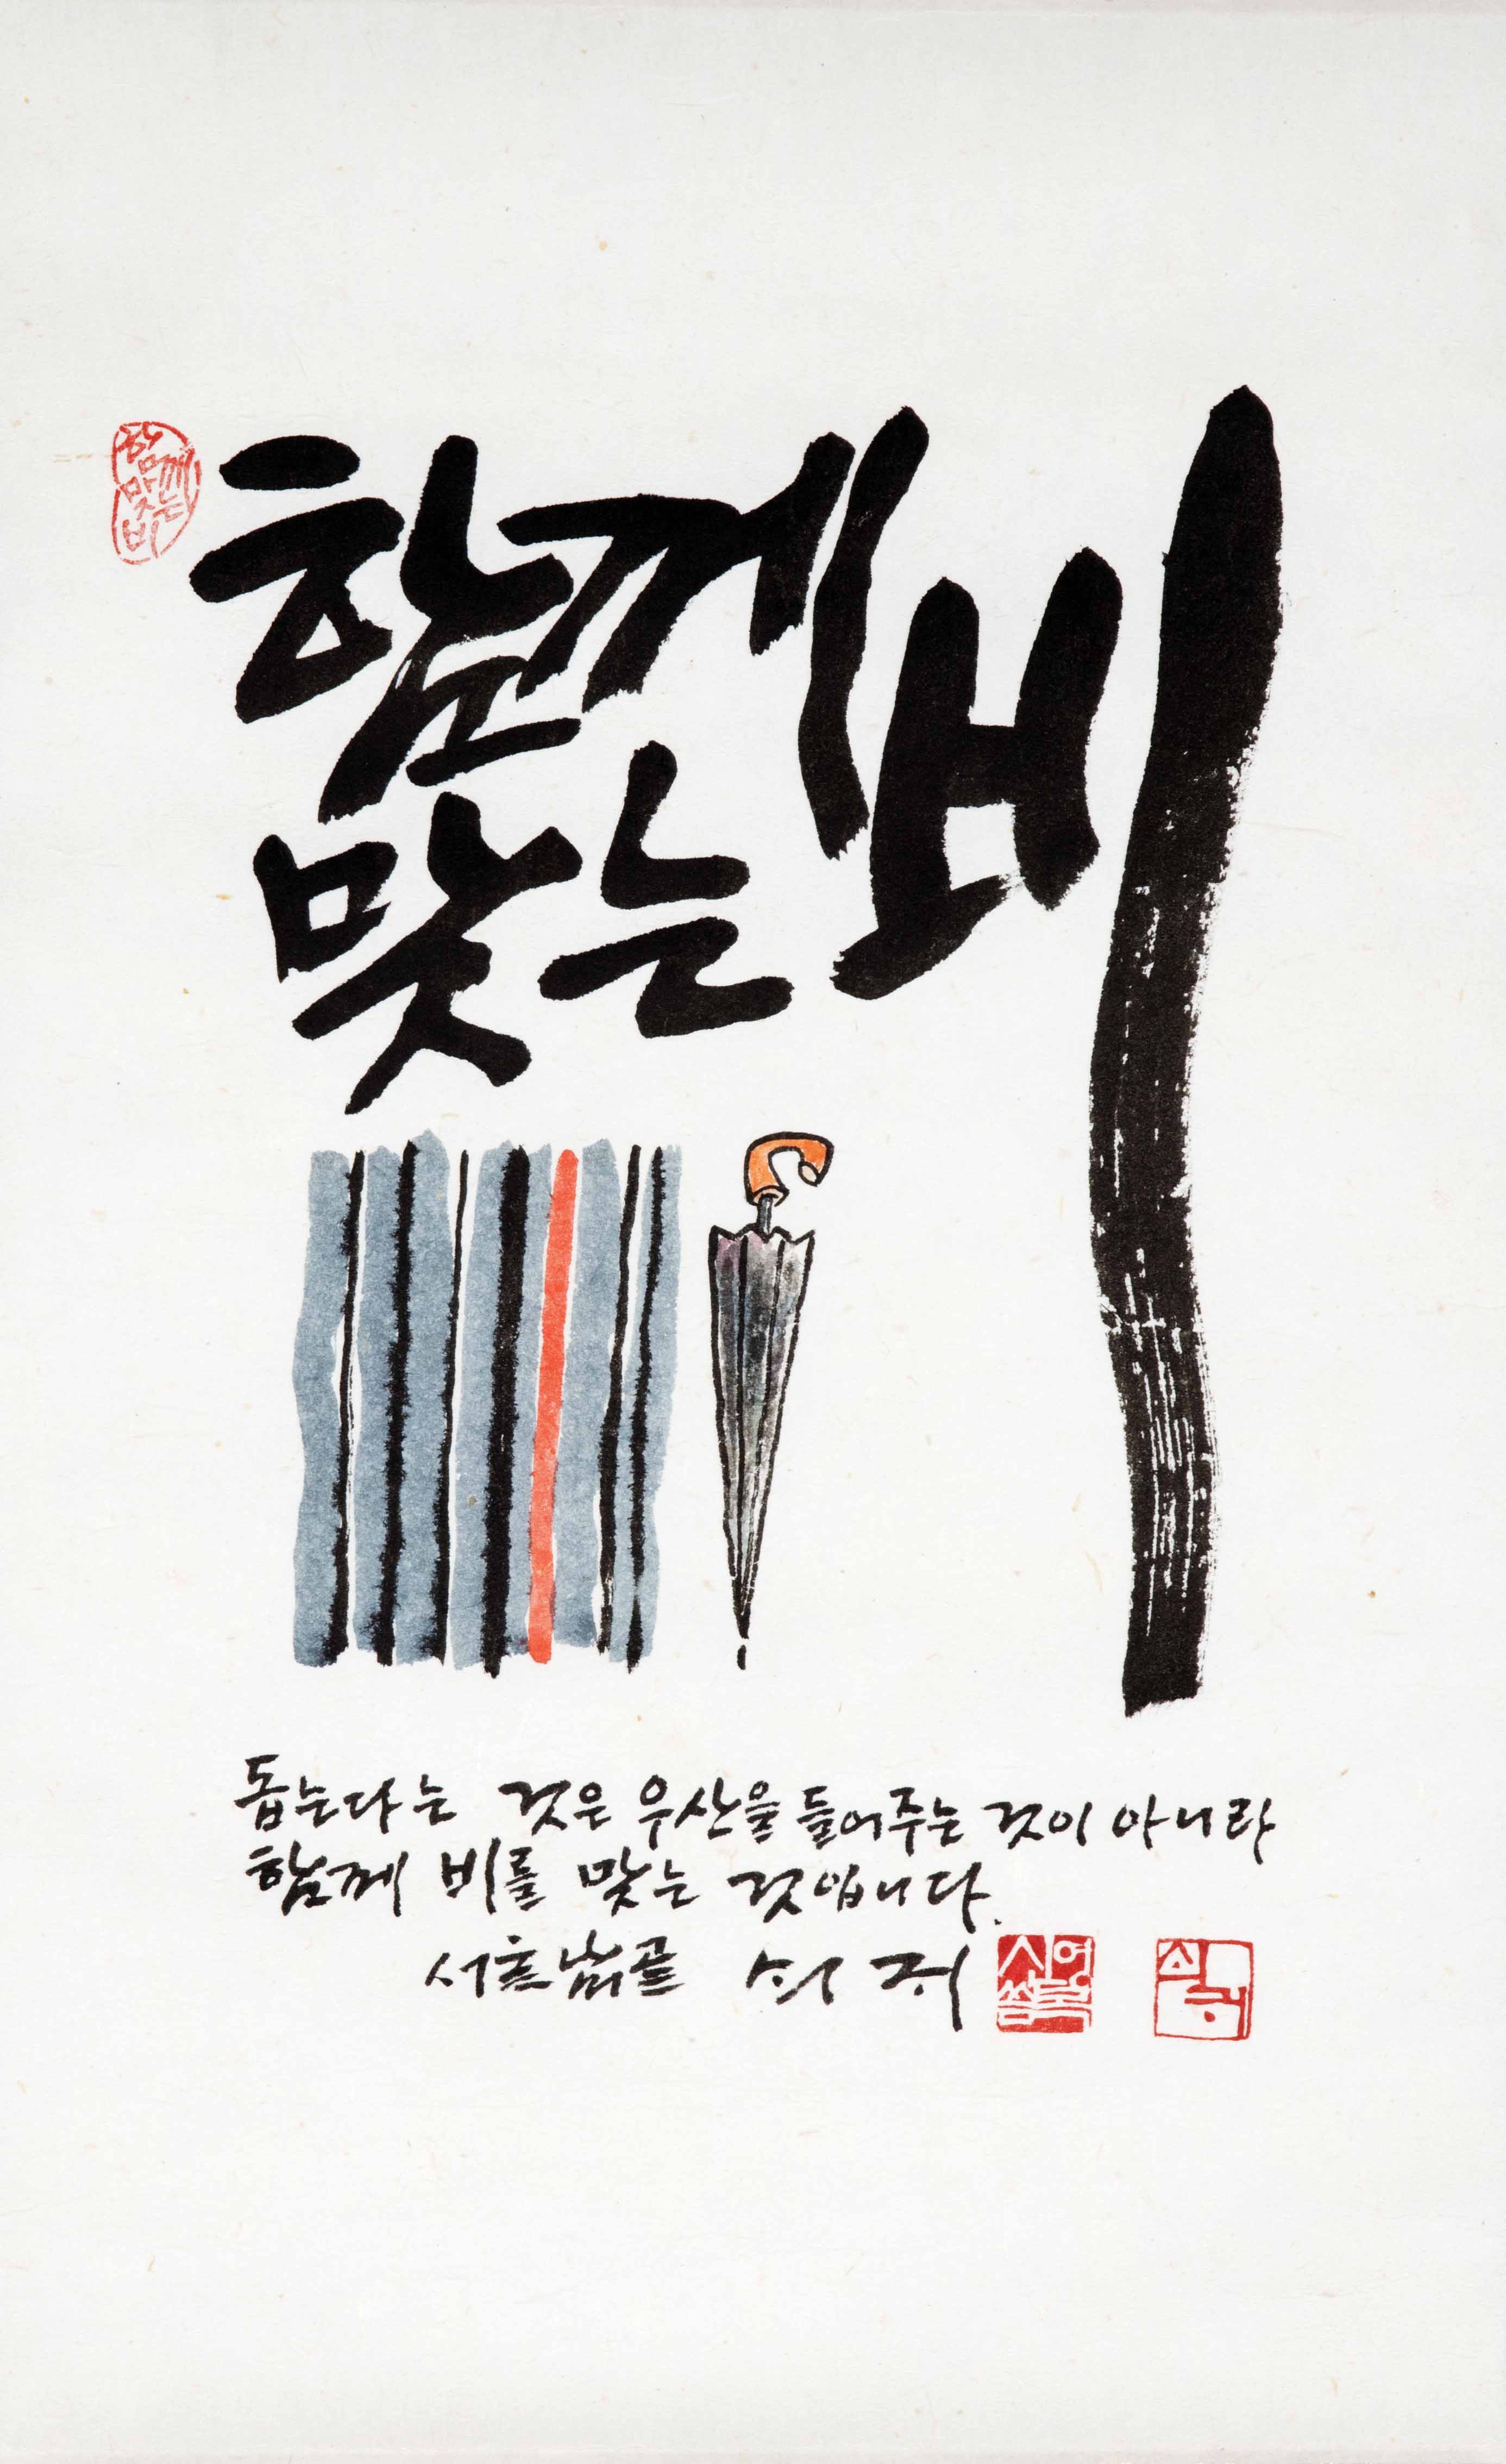 함께 맞는 비
함께
맞는
비
돕는다는 것은 우산을 들어주는 것이 아니라
함께 비를 맞는 것입니다.
쇠귀
신영복
쇠귀